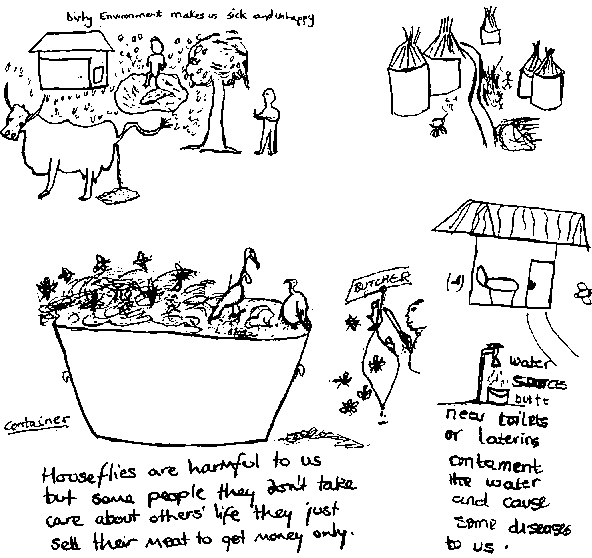 Dirty Environment makes us sick and unhappy
BUTCHER
Container
Houseflies are harmful to us
but some people they don't take
care about others' life they just
sell their meat to get money only.
water
sources
near toilets
or latering
contament
the water
and cause
some diseases
to us.